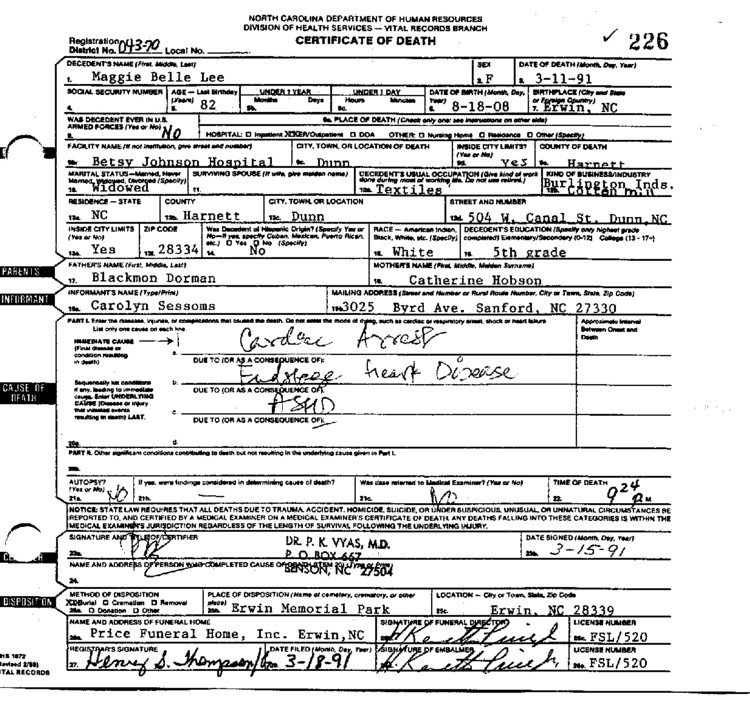 NORTH CAROLINA DEPARTMENT OF HUMAN RESOURCES
DIVISION OF HEALTH SERVICES – VITAL RECORDS BRANCH
CERTIFICATE OF DEATH
✓ 226
Registration District No. 043-70 Local No.
DECEDENT'S NAME (First, Middle, Last) SEX DATE OF DEATH (Month, Day, Year)
1. Maggie Belle Lee 2. F 3. 3-11-91
SOCIAL SECURITY NUMBER AGE – Last Birthday (Years) UNDER 1 YEAR UNDER 1 DAY DATE OF BIRTH (Month, Day, Year) BIRTHPLACE (City and State or Foreign Country)
4. 5. 82 5b. Months Days Hours Minutes 6. 8-18-08 7. Erwin, NC
WAS DECEDENT EVER IN U.S. ARMED FORCES (Yes or No) 9a. PLACE OF DEATH (Check only one: see instructions on other side)
8. No HOSPITAL: □ Inpatient XXER/Outpatient □ DOA OTHER: □ Nursing Home □ Residence □ Other (Specify)
FACILITY NAME (If not institution, give street and number) CITY, TOWN, OR LOCATION OF DEATH INSIDE CITY LIMITS (Yes or No) COUNTY OF DEATH
9b. Betsy Johnson Hospital 9c. Dunn 9d. Yes 9e. Harnett
MARITAL STATUS – Married, Never Married, Widowed, Divorced (Specify) SURVIVING SPOUSE (If wife, give maiden name) DECEDENT'S USUAL OCCUPATION (Give kind of work done during most of working life. Do not use retired.) KIND OF BUSINESS/INDUSTRY
10. Widowed 11. 12a. Textiles Burlington Inds.
12b. Cotton Mill
RESIDENCE – STATE COUNTY CITY, TOWN, OR LOCATION STREET AND NUMBER
13a. NC 13b. Harnett 13c. Dunn 13d. 504 W. Canal St. Dunn, NC
INSIDE CITY LIMITS (Yes or No) ZIP CODE Was Decedent of Hispanic Origin? (Specify Yes or No – If yes, specify Cuban, Mexican, Puerto Rican, etc.) □ Yes □ No (Specify) RACE – American Indian, Black, White, etc. (Specify) DECEDENT'S EDUCATION (Specify only highest grade completed) Elementary/Secondary (0-12) College (13 - 17+)
13e. Yes 13f. 28334 14. No 15. White 16. 5th grade
PARENTS
FATHER'S NAME (First, Middle, Last) MOTHER'S NAME (First, Middle, Maiden Surname)
17. Blackmon Dorman 18. Catherine Hobson
INFORMANT
INFORMANT'S NAME (Type/Print) MAILING ADDRESS (Street and Number or Rural Route Number, City or Town, State, Zip Code)
19a. Carolyn Sessoms 19b. 3025 Byrd Ave. Sanford, NC 27330
PART I. Enter the diseases, injuries, or complications that caused the death. Do not enter the mode of dying, such as cardiac or respiratory arrest, shock or heart failure
List only one cause on each line Approximate Interval Between Onset and Death
IMMEDIATE CAUSE (Final disease or condition resulting in death)
a. Cardiac Arrest
DUE TO (OR AS A CONSEQUENCE OF):
CAUSE OF DEATH
Sequentially list conditions if any, leading to immediate cause. Enter UNDERLYING CAUSE (Disease or injury that initiated events resulting in death) LAST.
b. Endstage heart Disease
DUE TO (OR AS A CONSEQUENCE OF):
c. ASHD
DUE TO (OR AS A CONSEQUENCE OF):
20a. d.
PART II. Other significant conditions contributing to death but not resulting in the underlying cause given in Part I.
20b.
AUTOPSY? (Yes or No) If yes, were findings considered in determining cause of death? Was case referred to Medical Examiner? (Yes or No) TIME OF DEATH
21a. NO 21b. — 21c. NO 22. 9 24 M.
NOTICE: STATE LAW REQUIRES THAT ALL DEATHS DUE TO TRAUMA, ACCIDENT, HOMICIDE, SUICIDE, OR UNDER SUSPICIOUS, UNUSUAL, OR UNNATURAL CIRCUMSTANCES BE
REPORTED TO, AND CERTIFIED BY A MEDICAL EXAMINER ON A MEDICAL EXAMINER'S CERTIFICATE OF DEATH. ANY DEATHS FALLING INTO THESE CATEGORIES IS WITHIN THE
MEDICAL EXAMINER'S JURISDICTION REGARDLESS OF THE LENGTH OF SURVIVAL FOLLOWING THE UNDERLYING INJURY.
SIGNATURE AND TITLE OF CERTIFIER DATE SIGNED (Month, Day, Year)
23a. DR. P. K. VYAS, M.D. 23b. 3-15-91
P. O. BOX 667
NAME AND ADDRESS OF PERSON WHO COMPLETED CAUSE OF DEATH
BENSON, NC 27504
24.
DISPOSITION
METHOD OF DISPOSITION PLACE OF DISPOSITION (Name of cemetery, crematory, or other place) LOCATION – City or Town, State, Zip Code
XXBurial □ Cremation □ Removal
25a. □ Donation □ Other 25b. Erwin Memorial Park 25c. Erwin, NC 28339
NAME AND ADDRESS OF FUNERAL HOME SIGNATURE OF FUNERAL DIRECTOR LICENSE NUMBER
26a. Price Funeral Home, Inc. Erwin, NC FSL/520
REGISTRAR'S SIGNATURE DATE FILED (Month, Day, Year) SIGNATURE OF EMBALMER LICENSE NUMBER
27. Henry S. Thompson 3-18-91 FSL/520
VITAL RECORDS